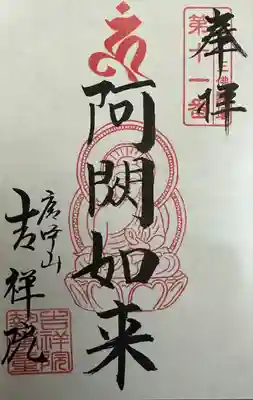 奉拝
第十一番
阿閦如来
山
吉祥院
吉祥院